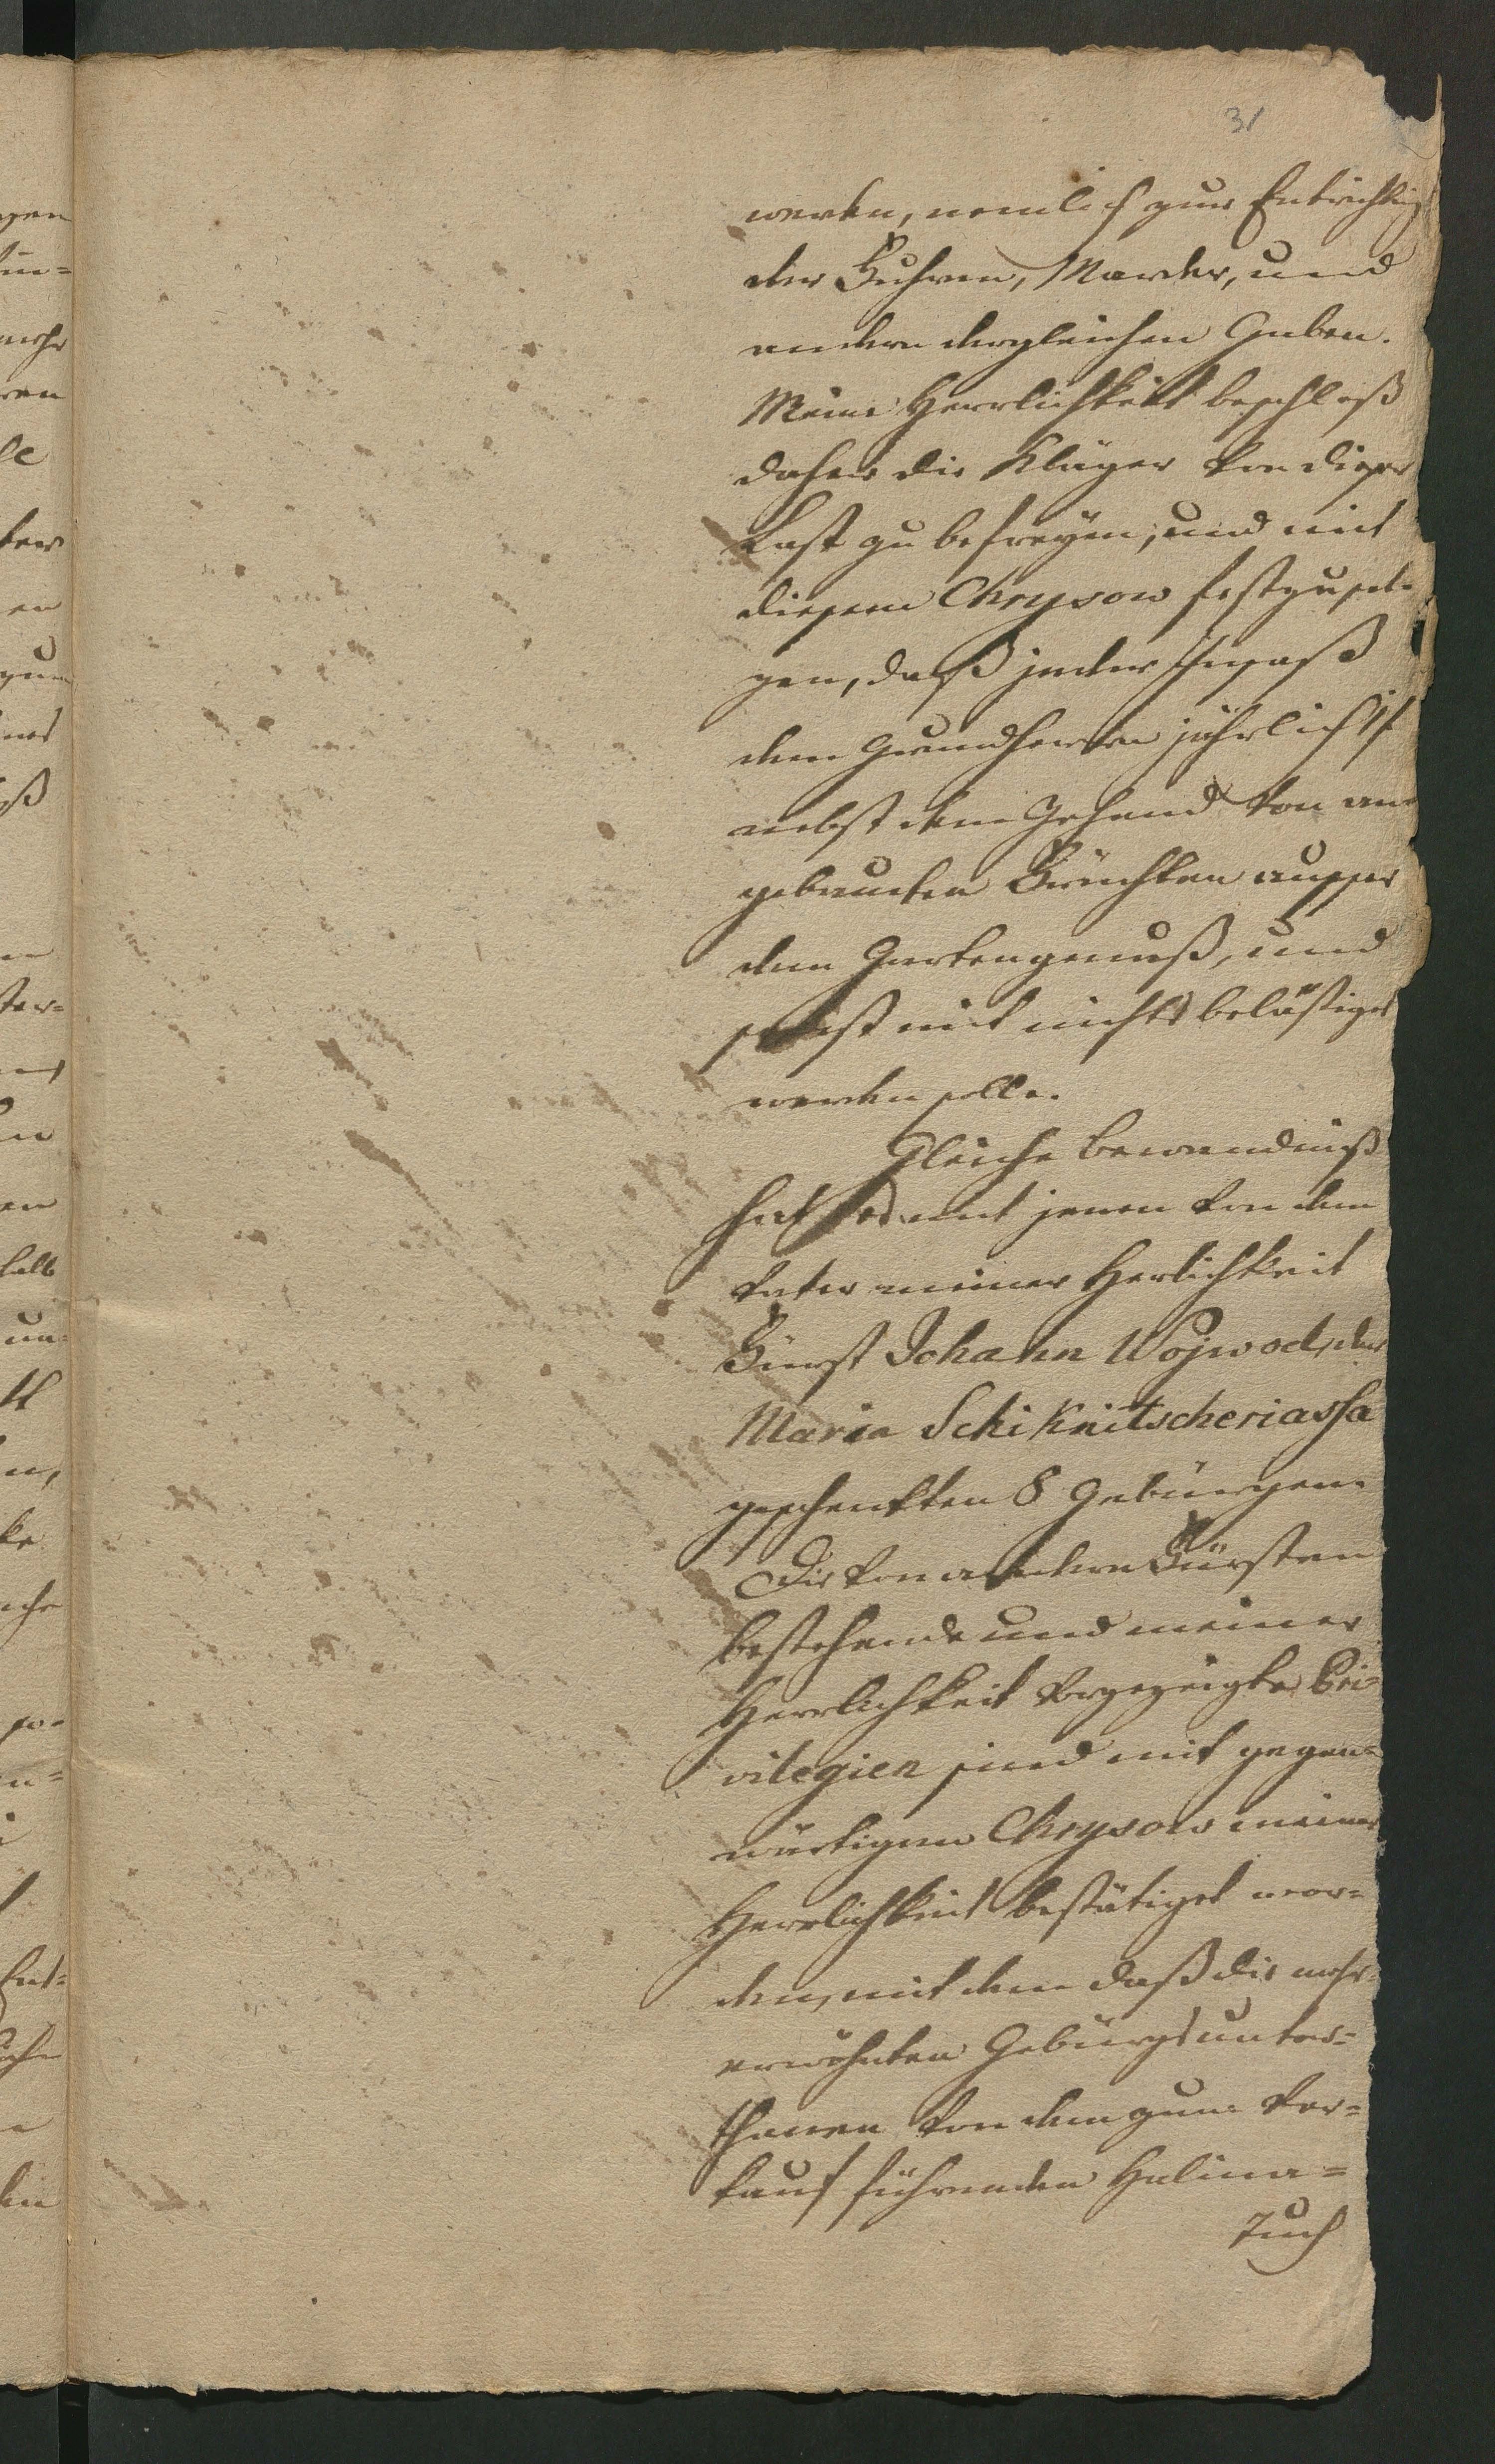 31
werden, nemlich zur Entrichtg
der Fuhren, Marder, und
andern dergleichen Gaben.
Meine Herrlichkeit beschloß
daher die Kläger von dieser
Last zu befreyen, und mit
diesem Chrysow festzuset-
zen, daß jeder Insaß
dem Grundherrn jährlich 1 f
nebst dem Zehend von an
gebauten Früchten ausser
dem Gartengenuß, und
sonst mit nichts belästiget
werden solle.
Gleiche Bewandniß
hat es mit jenen von dem
Vater meiner Herlichkeit
Fürst Johann Wojwod, der
Maria Schiknitscheriassa
geschenkten 8 Gebürgen.
Die von andern Fürsten
bestehende und meiner
Herrlichkeit vorgezeigte Pri-
vilegien sind mit gegen-
wärtigem Chrysow meiner
Herrlichkeit bestätiget wor-
den, mit dem daß die mehr-
erwähnten Gebürgsunter-
thanen von dem zum Ver-
kauf führenden Halina-
Tuch